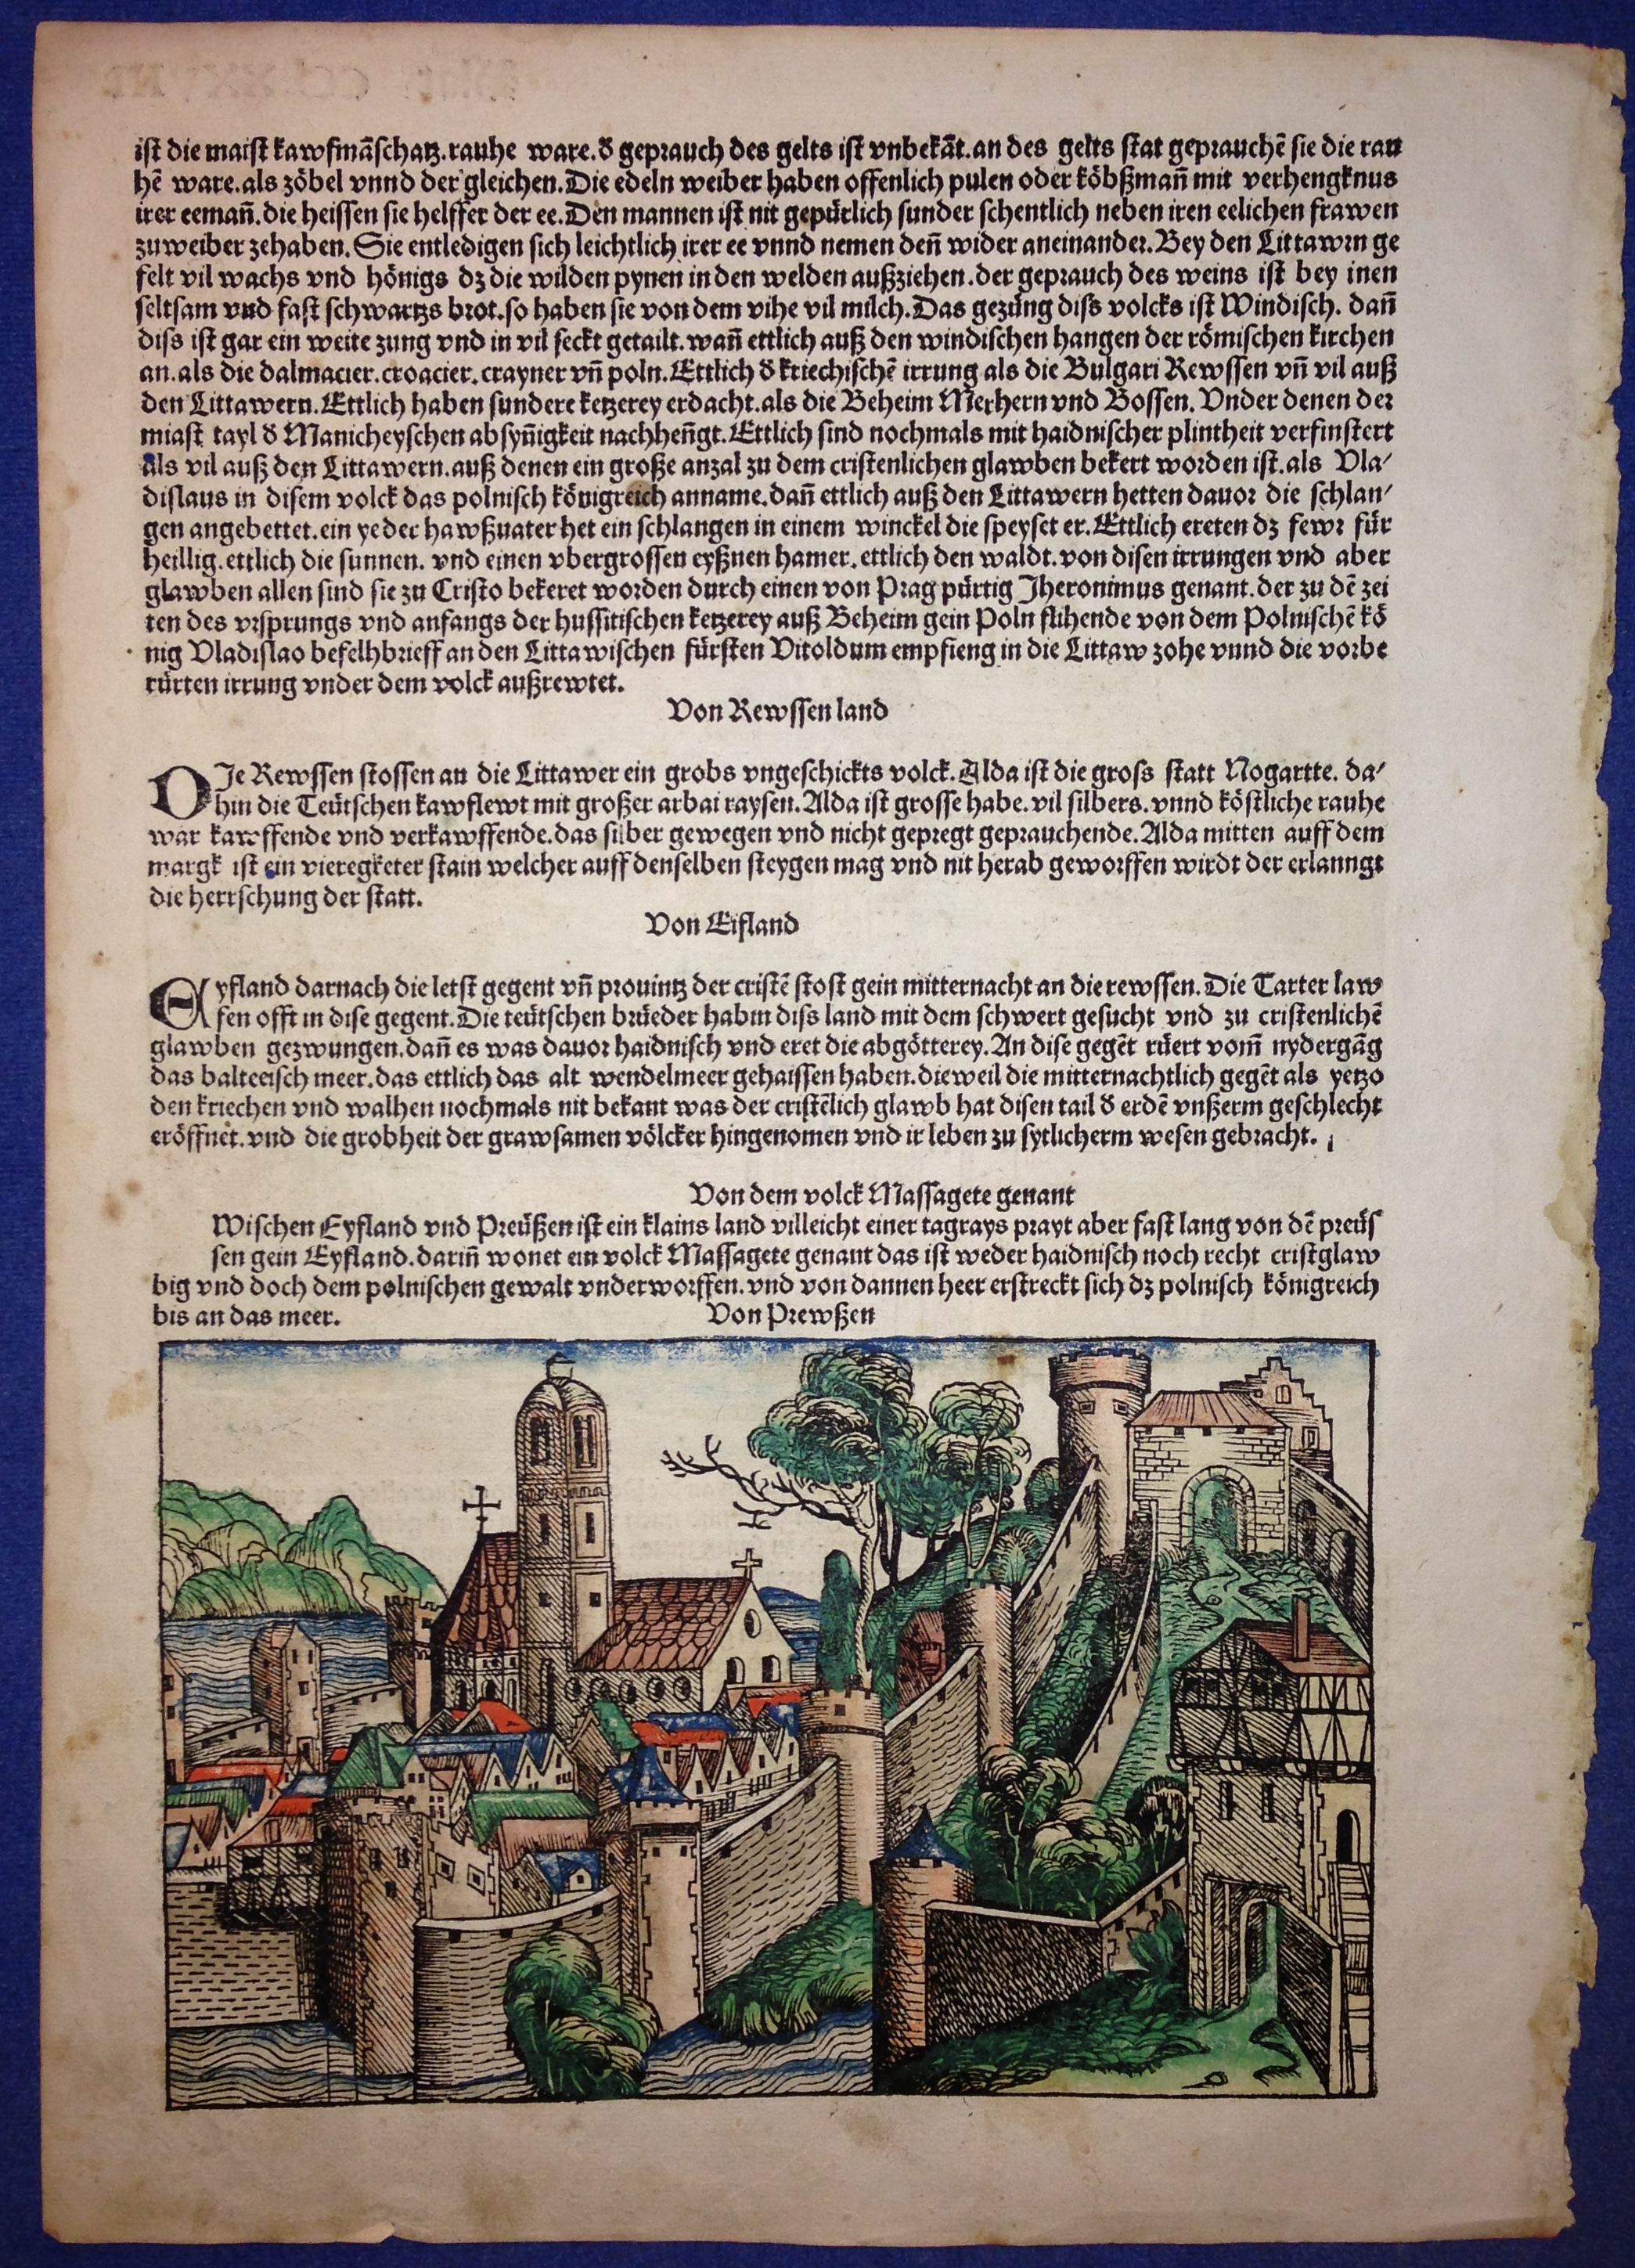 ist die maist kawfmãschatz.rauhe ware.d̕ geprauch des gelts ist vnbekãt.an des gelts stat geprauchẽ sie die rau
hẽ ware.als zöbel vnnd der gleichen.Die edeln weiber haben offenlich pulen oder köbßman̄ mit verhengknus
irer eeman̄.die heissen sie helffer der ee.Den mannen ist nit gepürlich sunder schentlich neben iren eelichen frawen
zuweiber zehaben.Sie entledigen sich leichtlich irer ee vnnd nemen den̄ wider aneinander.Bey den Littawrn ge
felt vil wachs vnd hönigs dz die wilden pynen in den welden außziehen.der geprauch des weins ist bey inen
seltsam vnd fast schwartzs brot.so haben sie von dem vihe vil milch.Das gezüng diss volcks ist Windisch. dan̄
diss ist gar ein weite zung vnd in vil seckt getailt.wan̄ ettlich auß den windischen hangen der römischen kirchen
an.als die dalmacier.croacier.crayner vn̄ poln.Ettlich d̕ kriechischẽ irrung als die Bulgari Rewssen vn̄ vil auß
den Littawern.Ettlich haben sundere ketzerey erdacht.als die Beheim Merhern vnd Bossen. Vnder denen der
miast tayl d̕ Manicheyschen absyn̄igkeit nachhen̄gt.Ettlich sind nochmals mit haidnischer plintheit verfinstert
als vil auß den Littawern.auß denen ein große anzal zu dem cristenlichen glawben bekert worden ist.als Vla-
dislaus in disem volck das polnisch königreich anname.dan̄ ettlich auß den Littawern hetten dauor die schlan-
gen angebettet.ein yeder hawßuater het ein schlangen in einem winckel die speyset er.Ettlich ereten dz fewr für
heillig.ettlich die sunnen. vnd einen vbergrossen eyßnen hamer. ettlich den waldt.von disen irrungen vnd aber
glawben allen sind sie zu Cristo bekeret worden durch einen von Prag pürtig Jheronimus genant.der zu dẽ zei
ten des vrsprungs vnd anfangs der hussitischen ketzerey auß Beheim gein Poln flihende von dem Polnischẽ kö
nig Vladislao befelhbrieff an den Littawischen fürsten Vitoldum empfieng in die Littaw zohe vnnd die vorbe
rürten irrung vnder dem volck außrewtet.
Von Rewssen land
DJe Rewssen stossen an die Littawer ein grobs vngeschickts volck. Alda ist die gross statt Nogartte. da-
hin die Teütschen kawflewt mit großer arbai raysen.Alda ist grosse habe.vil silbers.vnnd köstliche rauhe
war kawffende vnd verkawffende.das silber gewegen vnd nicht gepregt geprauchende.Alda mitten auff dem
margk ist ein vieregketer stain welcher auff denselben steygen mag vnd nit herab geworffen wirdt der erlanngt
die herrschung der statt.
Von Eifland
Eyfland darnach die letst gegent vn̄ prouintz der cristẽ stost gein mitternacht an die rewssen.Die Tarter law
fen offt in dise gegent.Die teütschen brüeder habin diss land mit dem schwert gesucht vnd zu cristenlichẽ
glawben gezwungen.dan̄ es was dauor haidnisch vnd eret die abgötterey.An dise gegẽt rüert vom̄ nydergãg
das balteeisch meer.das ettlich das alt wendelmeer gehaissen haben.dieweil die mitternachtlich gegẽt als yetzo
den kriechen vnd walhen nochmals nit bekant was der cristẽlich glawb hat disen tail d̕ erdẽ vnßerm geschlecht
eröffnet.vnd die grobheit der grawsamen völcker hingenomen vnd ir leben zu sytlicherm wesen gebracht.
Von dem volck Massagete genant
Wischen Eyfland vnd Preüßen ist ein klains land villeicht einer tagrays prayt aber fast lang von dẽ preüs
sen gein Eyfland.darin̄ wonet ein volck Massagete genant das ist weder haidnisch noch recht cristglaw
big vnd doch dem polnischen gewalt vnderworffen.vnd von dannen heer erstreckt sich dz polnisch königreich
bis an das meer. Von Prewßen